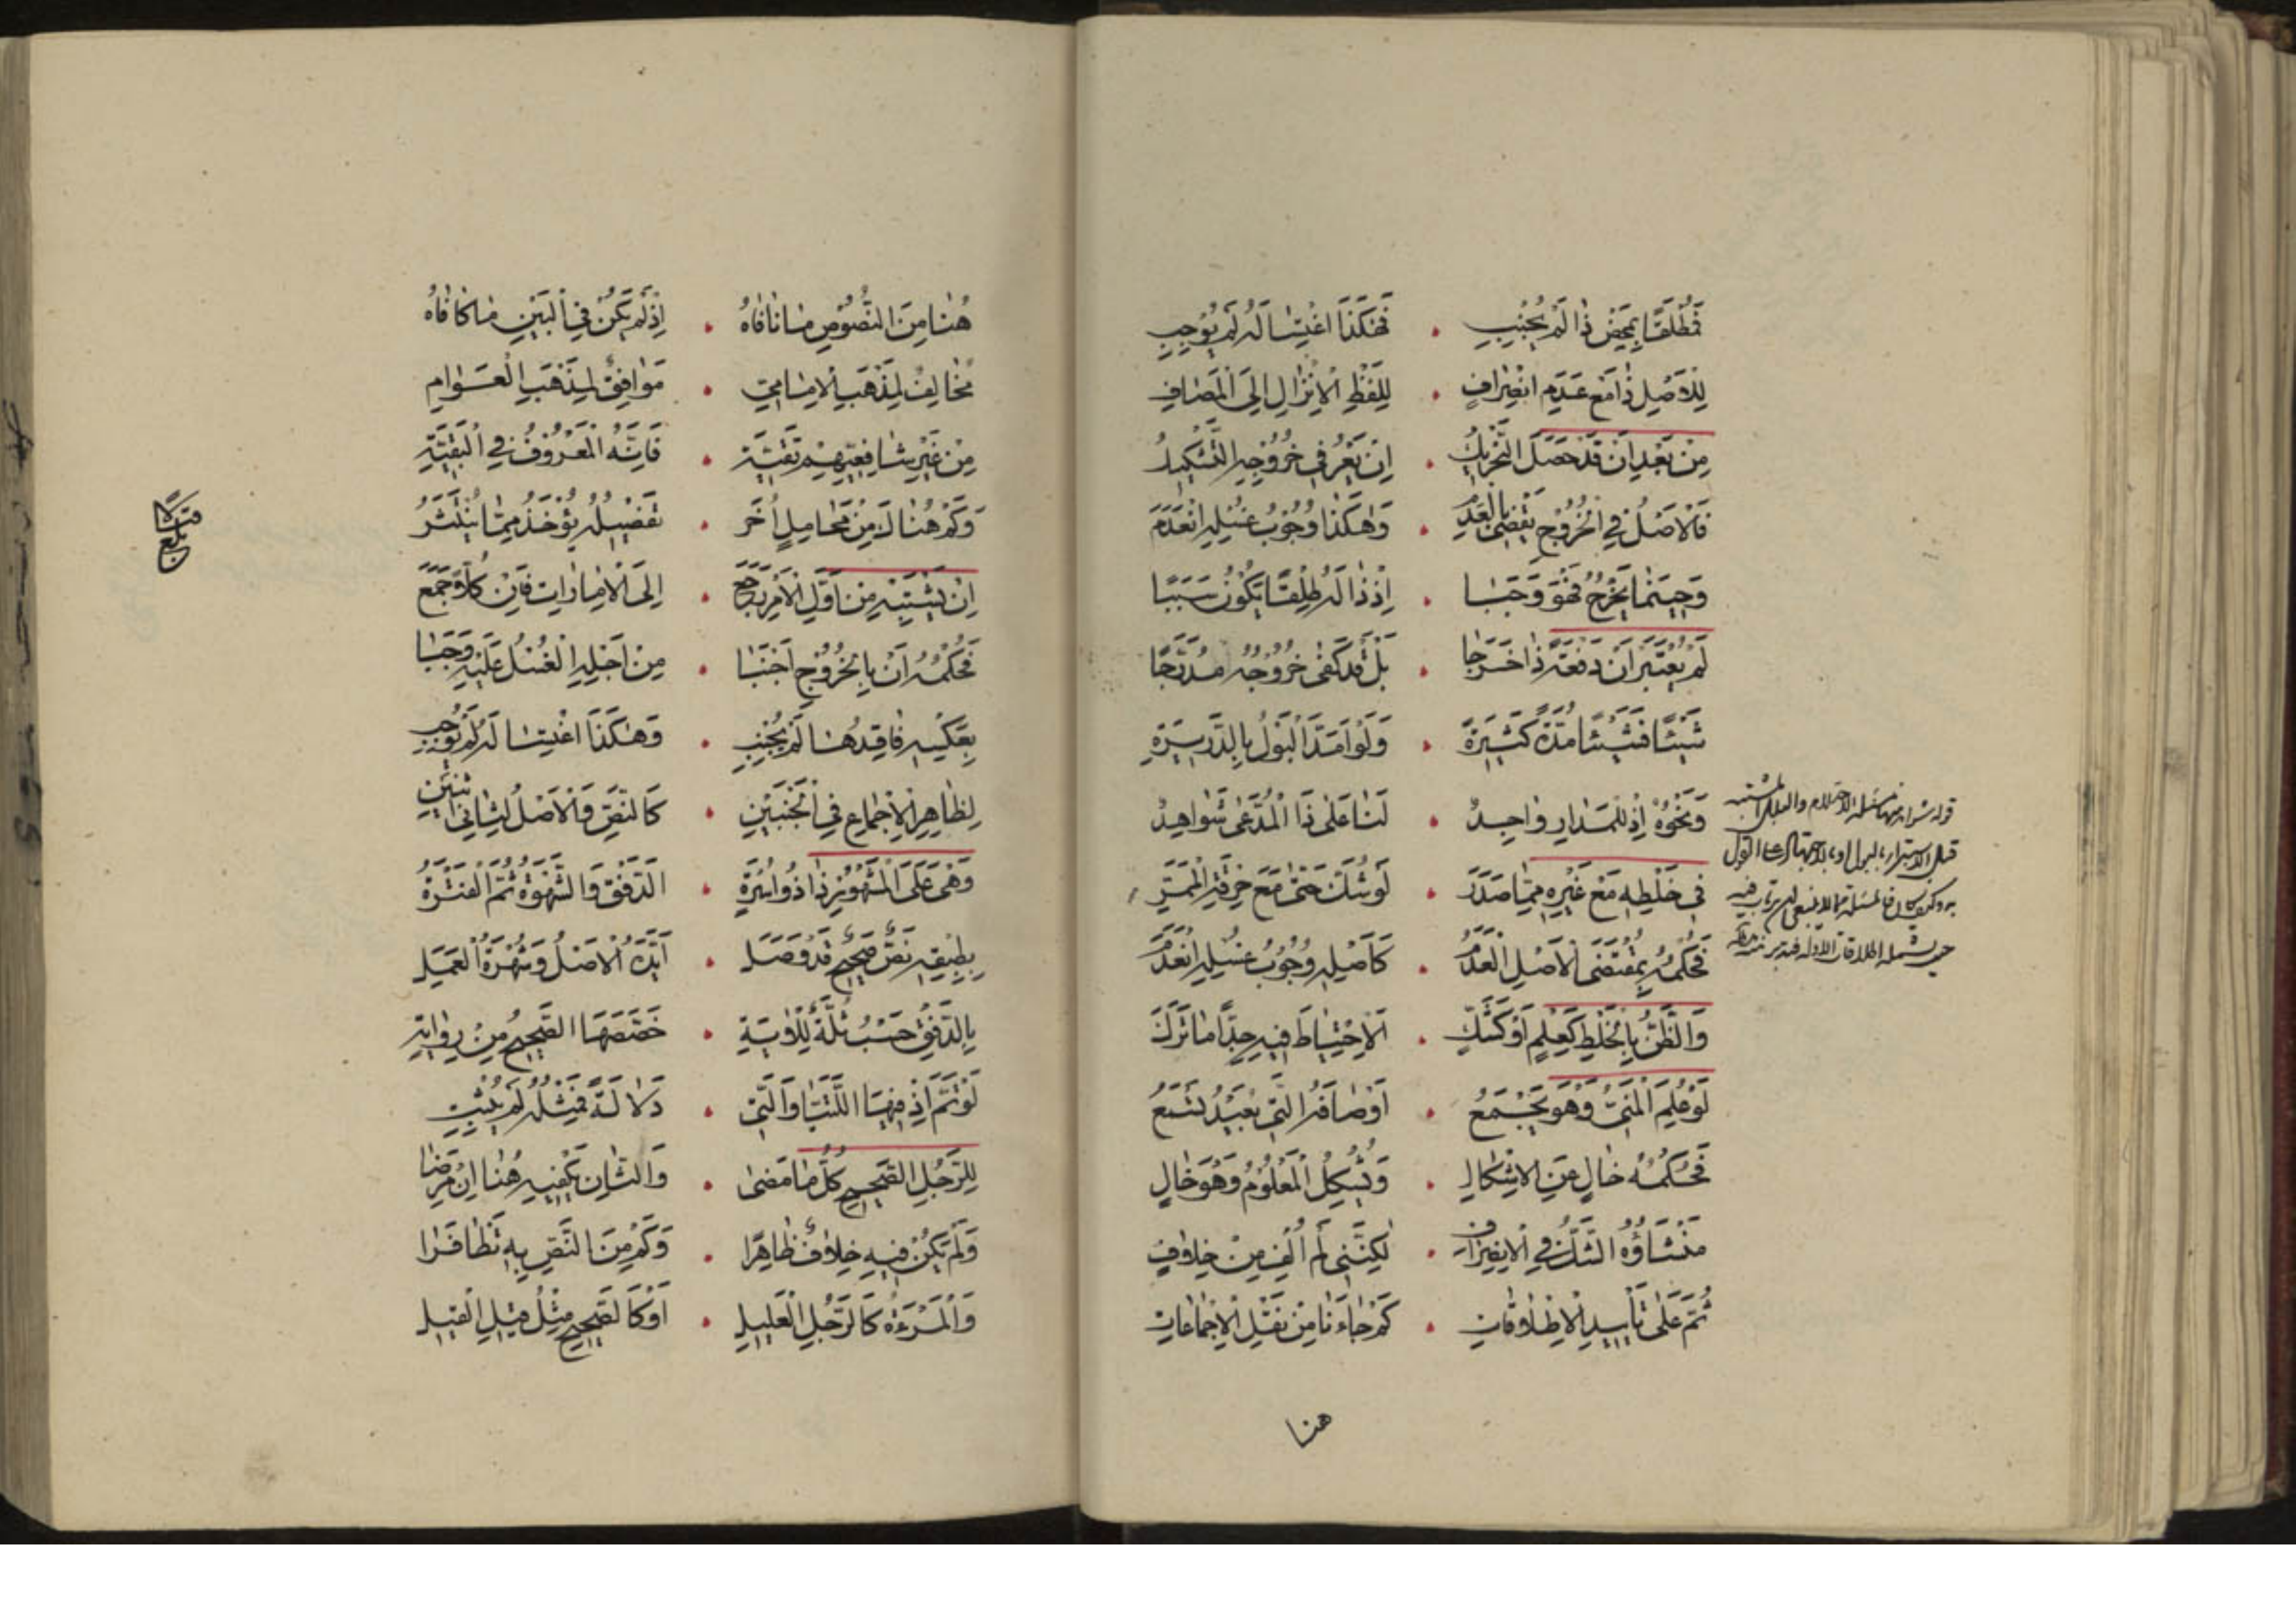 فَمُطْلَقًا بِمَحْضِ ذَا لَمْ يُجْنِبِ • فَهَكَذَا اغْتِسَالُهُ لَمْ يُوجِبِ
لِلْأَصْلِ ذَا مَعَ عَدَمِ انْصِرَافِ • لِلَّفْظِ الْإِنْزَالِ إِلَى الْمُضَافِ
مِنْ بَعْدِ أَنْ قَدْ حَصَلَ التَّحْرِيكُ • إِنْ يَعْرُ فِي خُرُوجِهِ التَّشْكِيكُ
فَالْأَصْلُ فِي الْخُرُوجِ يَقْضِي بِالْعَدَمِ • وَهَكَذَا وُجُوبُ غُسْلِهِ انْعَدَمَ
وَحِينَمَا يَخْرُجُ فَهْوَ وَجَبَا • إِذْ ذَا لَهُ طَلْقًا يَكُونُ سَبَبًا
لَمْ يُعْتَبَرْ أَنْ دَفْعَةً ذَا خَرَجَا • بَلْ قَدْ كَفَى خُرُوجُهُ مُدَرَّجًا
شَيْئًا فَشَيْئًا مُدَّةً كَثِيرَةً • وَلَوْ أَمَدَّ الْبَوْلُ بِالدَّرِيرَةِ
وَنَحْوُهُ إِذْ لِلْمَدَارِ وَاحِدٌ • لَنَا عَلَى ذَا الْمُدَّعَى شَوَاهِدُ
فِي خَلْطِهِ مَعْ غَيْرِهِ مِمَّا صَدَرَ • لَوْ شَكَّ حَتَّى مَعَ خِرْقَةِ الْمَمَرِّ
فَحُكْمُهُ بِمُقْتَضَى الْأَصْلِ الْعَدَمُ • كَأَصْلِهِ وُجُوبُ غُسْلِهِ انْعَدَمَ
وَالظَّنُّ بِالْخَلْطِ كَعِلْمٍ أَوْ كَشَكٍّ • الِاحْتِيَاطَ فِيهِ جِدًّا مَا تَرَكَ
لَوْ عُلِمَ الْمَنِيُّ وَهْوَ يَجْمَعُ • أَوْصَافَهُ الَّتِي بُعَيْدُ تُسْمَعُ
فَحُكْمُهُ خَالٍ عَنِ الْإِشْكَالِ • وَيُشْكِلُ الْمَعْلُومُ وَهُوَ خَالٍ
مَنْشَاؤُهُ الشَّكُّ فِي الِانْصِرَافِ • لَكِنَّنِي لَمْ أُلْفِ مِنْ خِلَافٍ
ثُمَّ عَلَى تَأْيِيدِ الْإِطْلَاقَاتِ • كَمْ جَاءَنَا مِنْ نَقْلِ الْإِجْمَاعَاتِ
هنا
هُنَا مِنَ النُّصُوصِ مَا نَافَاهُ • إِذْ لَمْ يَكُنْ فِي الْبَيْنِ مَا كَافَاهُ
مُخَالِفٌ لِمَذْهَبِ الْإِمَامِيِّ • مَوَافِقٌ لِمَذْهَبِ الْعَوَامِ
مِنْ غَيْرِ شَافِعِيِّهِمْ تَقِيَّةً • فَإِنَّهُ الْمَعْرُوفُ فِي الْبَقِيَّةِ
وَكَمْ هُنَالِكَ مِنْ مَحَامِلٍ أُخَرَ • تَفْصِيلُهُ يُؤْخَذُ مِمَّا يُنْتَثَرُ
إِنْ يَشْتَبِهْ مِنْ أَوَّلِ الْأَمْرِ رَجَعَ • إِلَى الْأَمَارَاتِ فَإِنْ كُلًّا جَمَعَ
فَحُكْمُهُ أَنْ بِالْخُرُوجِ أَجْنَبَا • مِنْ أَجْلِهِ الْغُسْلُ عَلَيْهِ وَجَبَا
بِعَكْسِهِ فَاقِدُهَا لَمْ يُجْنِبِ • وَهَكَذَا اغْتِسَالُهُ لَمْ يُوجِبِ
لِظَاهِرِ الْإِجْمَاعِ فِي الْجَنْبَيْنِ • كَالنَّصِّ وَالْأَصْلُ لِثَانِي اثْنَيْنِ
وَهْيَ عَلَى الْمَشْهُورِ ذَا ذُو أَثَرَةٍ • الدَّفْقُ وَالشَّهْوَةُ ثُمَّ الْفَتْرَةُ
بِطِبْقِهِ نَصٌّ صَحِيحٌ قَدْ وَصَلَ • أَيَّدَهُ الْأَصْلُ وَشُهْرَةُ الْعَمَلِ
بِالدَّفْقِ حَسْبُ ثُلَّةٌ لِلْآيَةِ • خَصَّصَهَا الصَّحِيحُ مِنْ رِوَايَةٍ
لَوْ تَمَّ إِذْ فِيهَا اللَّتَيَّا وَالَّتِي • دَلَالَةً فَمِثْلُهُ لَمْ يُثْبِتِ
لِلرَّجُلِ الصَّحِيحِ كُلُّ مَا مَضَى • وَالثَّانِ يَكْفِيهِ هُنَا إِنْ مَرِضَا
وَلَمْ يَكُنْ فِيهِ خِلَافٌ ظَاهِرًا • وَكَمْ مِنَ النَّصِّ بِهِ تَظَافَرَا
وَالْمَرْءَةُ كَالرَّجُلِ الْعَلِيلِ • أَوْ كَالصَّحِيحِ مِثْلُ قِيلِ الْقِيلِ
بلغ